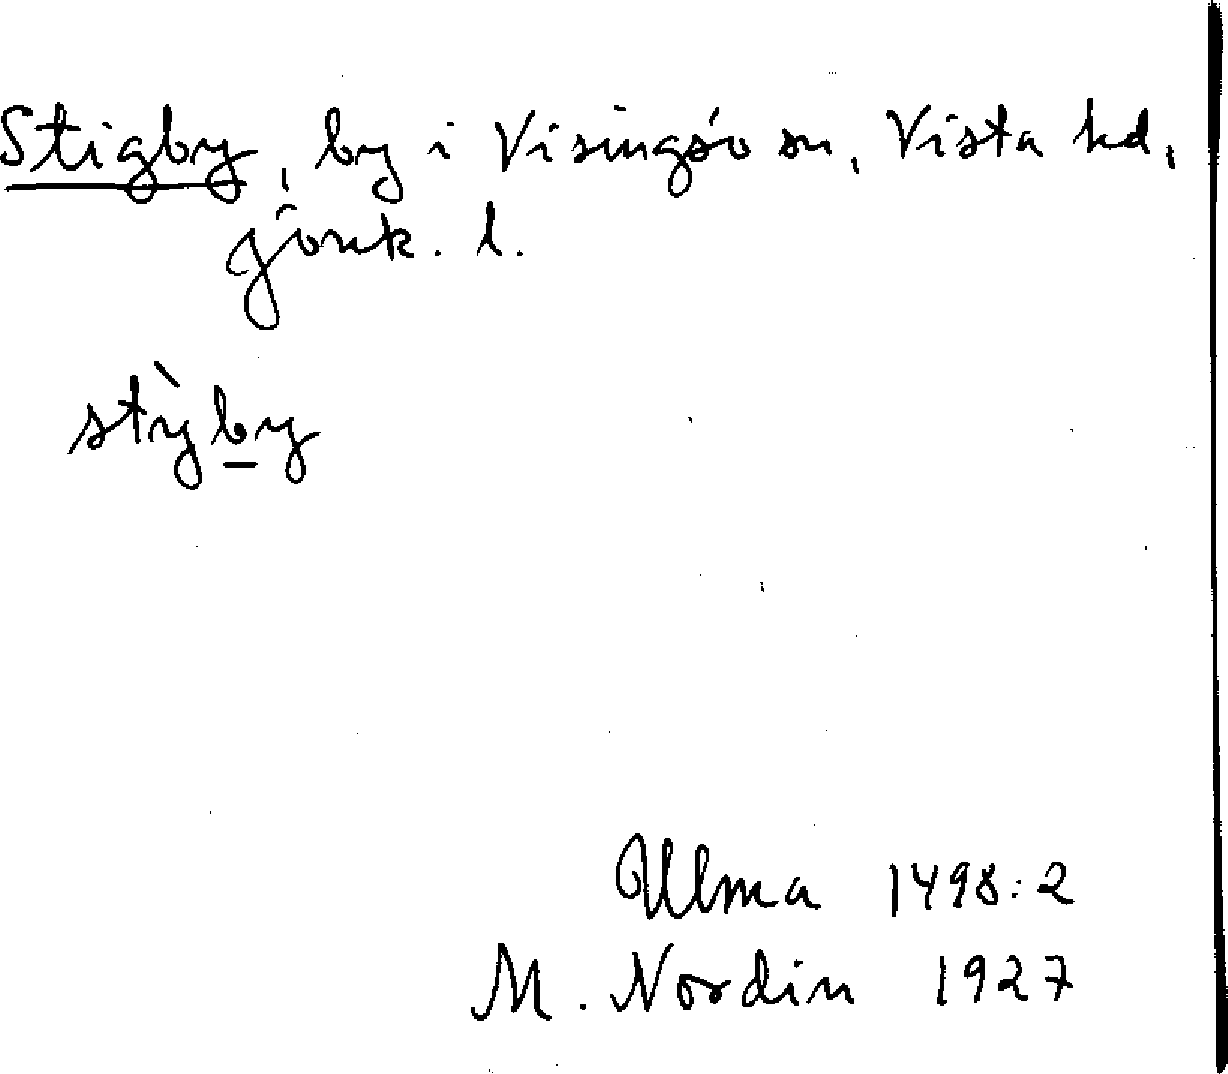 Stigby, by i Visingsö sn, Vista hd,
Jönk. l.
stỳby
Ulma 1498:2
M. Nordin 1927